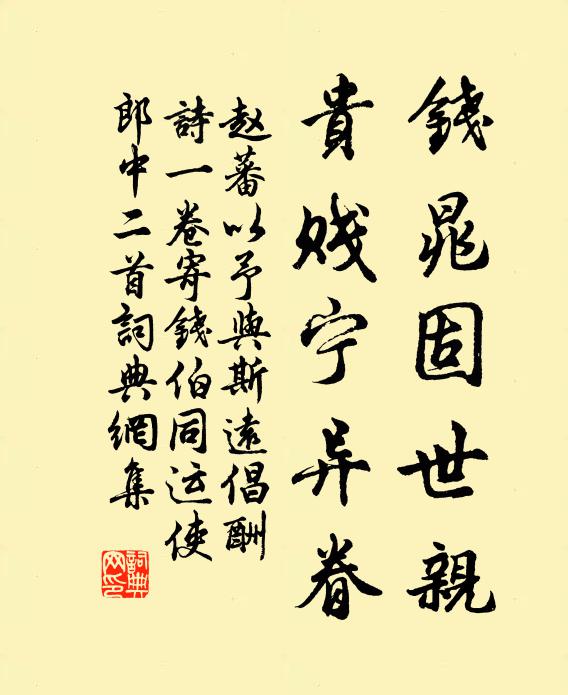 錢晁固世親
貴賤宁异眷
赵蕃以予與斯遠倡酬
詩一卷寄錢伯同运使
郎中二首詞典網集
詞典
网印